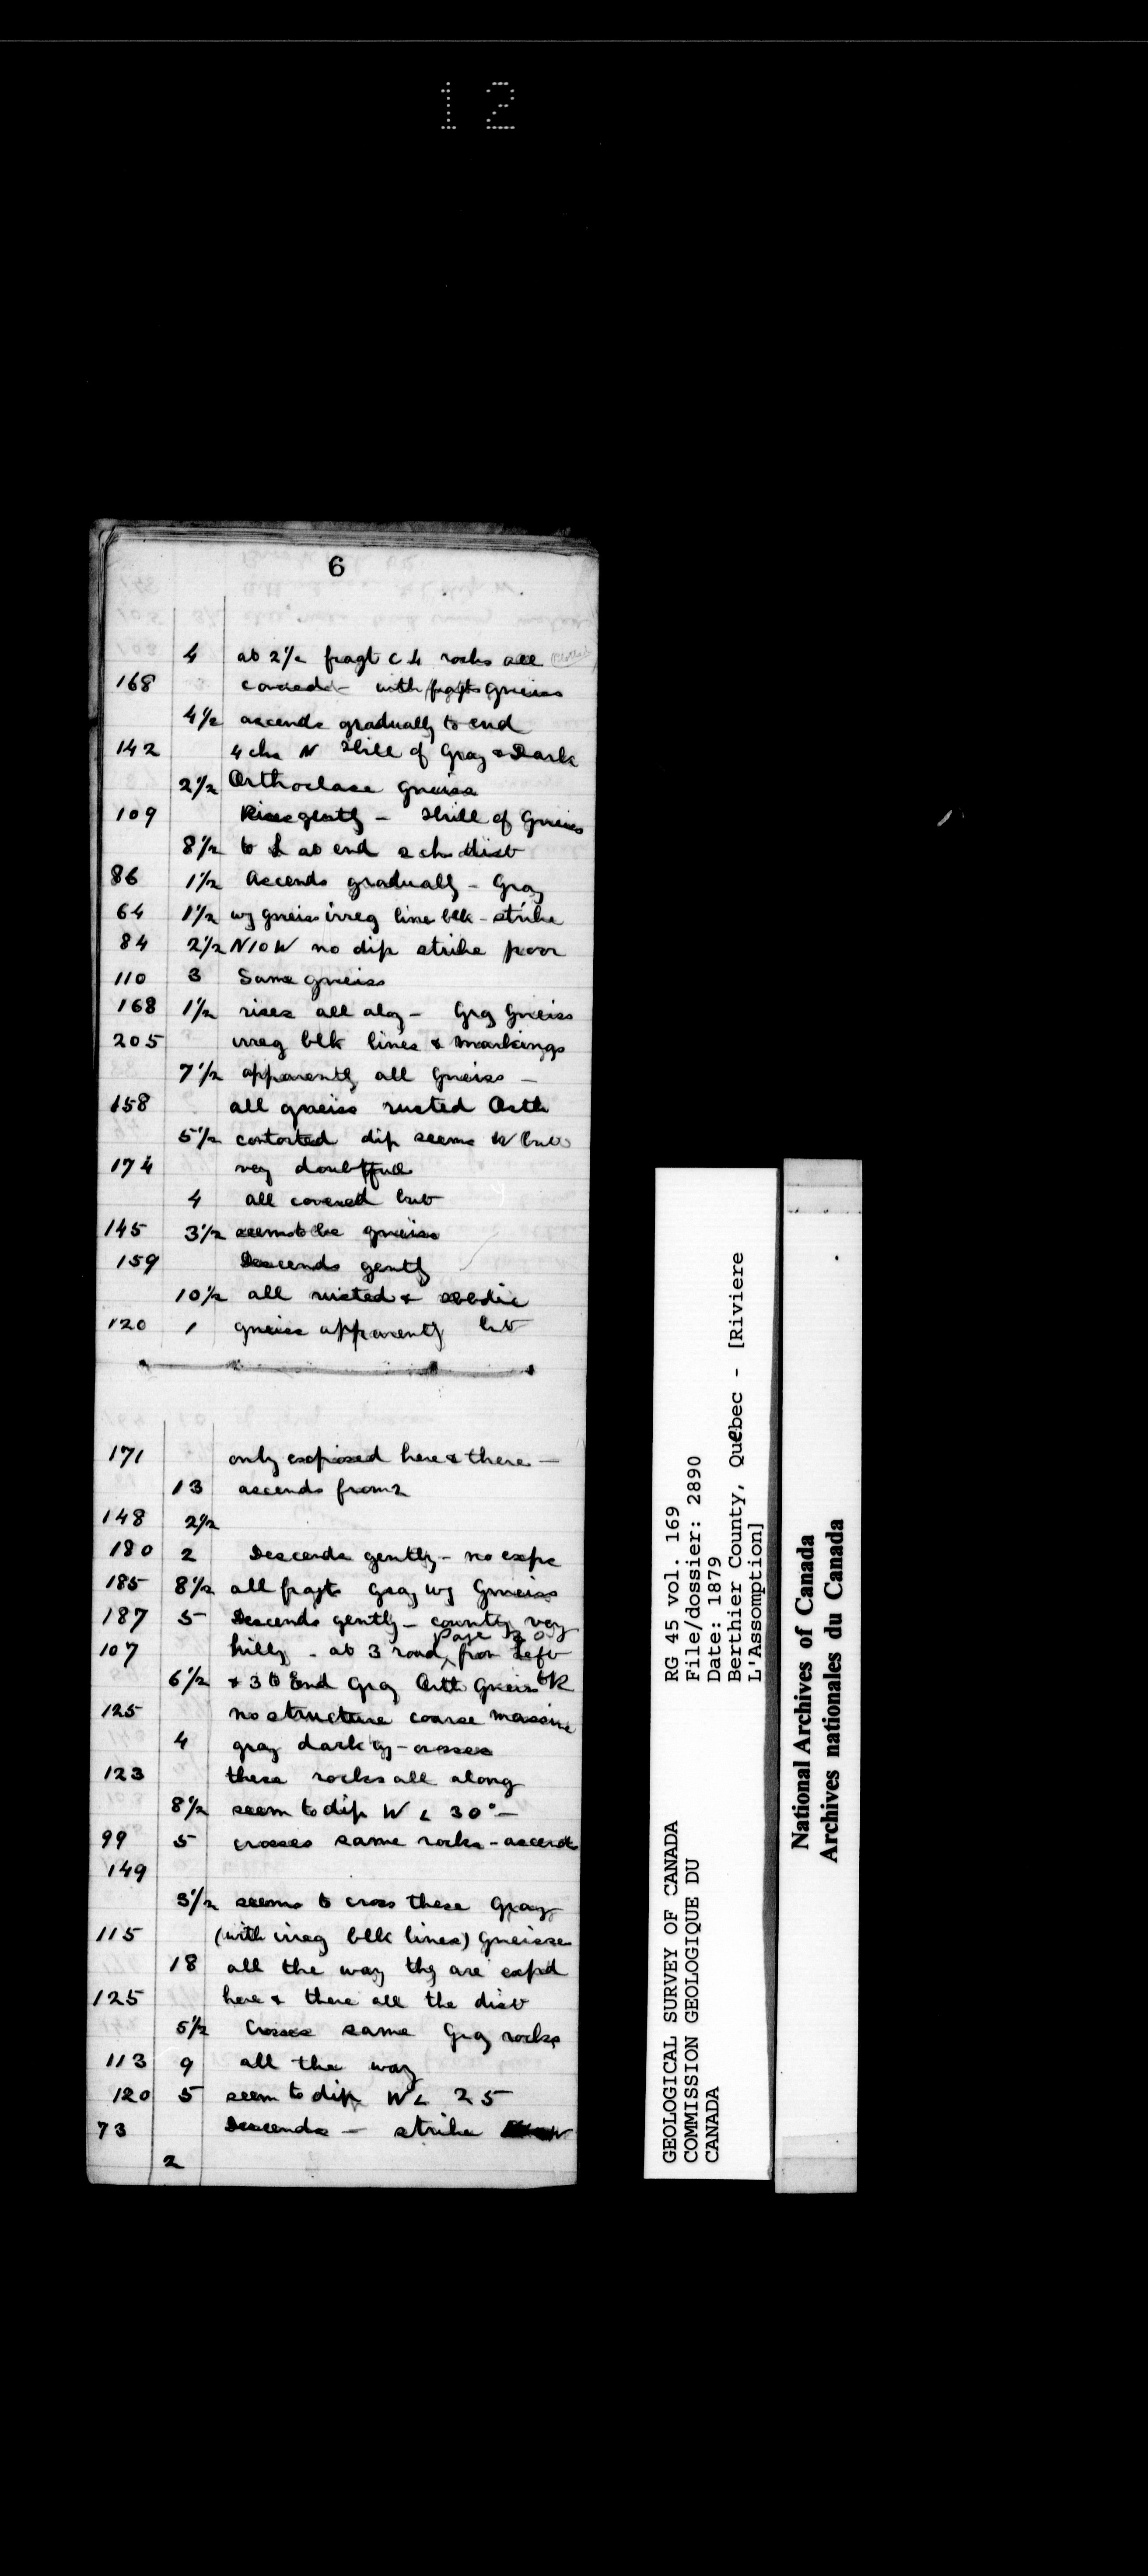 12
6
4 at 2½ fragt c L rocks all
168 covered with fragts gneiss
4½ ascends gradually to end
142 4 chs N Hill of Gray & Dark
2½ Orthoclase gneiss
109 Rises gently - Hill of Gneiss
8½ to L at end 2 chs dist
86 1½ Ascends gradually - Gray
64 1½ gneiss irreg line blk - strike
84 2½ N10W no dip strike poor
110 3 Same gneiss
168 1½ rises all alog - Gray Gneiss
205 irreg blk lines & markings
7½ apparently all Gneiss -
158 all gneiss rusted Orth
5½ contorted dip seems W but
174 very doubtfull
4 all covered but
145 3½ seems to be gneiss
159 Descends gently
10½ all rusted &
120 1 gneiss apparently but
171 only exposed here & there -
13 ascends from 2
148 2½
180 2 Descends gently - no exps
185 8½ all fragts Gray Gneiss
187 5 Descends gently - country very
Page
107 hilly - at 3 road from Left
6½ & 3 to End Gray Orth Gneiss
125 no structure coarse massive
4 gray dark - crosses
123 these rocks all along
8½ seem to dip W ∠ 30° -
99 5 crosses same rocks - ascends
149
3½ seems to cross these Gray
115 (with irreg blk lines) Gneisses
18 all the way thy are expd
125 here & there all the dist
5½ Crosses same Gray rocks
113 9 all the way
120 5 seem to dip W ∠ 25
73 Descends - strike
2
GEOLOGICAL SURVEY OF CANADA
COMMISSION GEOLOGIQUE DU
CANADA
RG 45 vol. 169
File/dossier: 2890
Date: 1879
Berthier County, Quebec - [Riviere
L'Assomption]
National Archives of Canada
Archives nationales du Canada